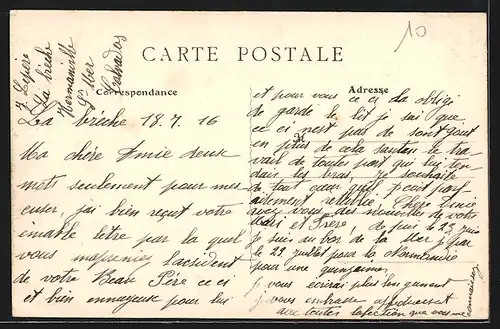 10
CARTE POSTALE
Correspondance
Adresse
La brèche
Hermanville
St Mer
Calvados
La brèche 18.7.16
Ma chère Amie deux
mots seulement pour mes
cuser, j'ai bien reçut votre
emable letre par la quel
vous mapreniez laccident
de votre Beau Père ce ci
et bien ennayeuse pour lui
et pour vous ce ci la obligé
de gardé le lit je sai que
ce ci n'est pas de sont gout
en plus de cela sautou le tra-
vail de toutes part qui lui ten-
dais les bras, Je souhaite
de tout cœur quil soit par-
aitment rétablie, Chère Amie
avez vous des nouvelles de votre
Mari et Frère, de puis le 25 juin
je suis au bor de la Mer j'y par
le 25 juillet pour la Normandie
pour une quinzaines
je vous écrirai plus longument
je vous embrasse
avec toutes lafection que vous me
connaissez